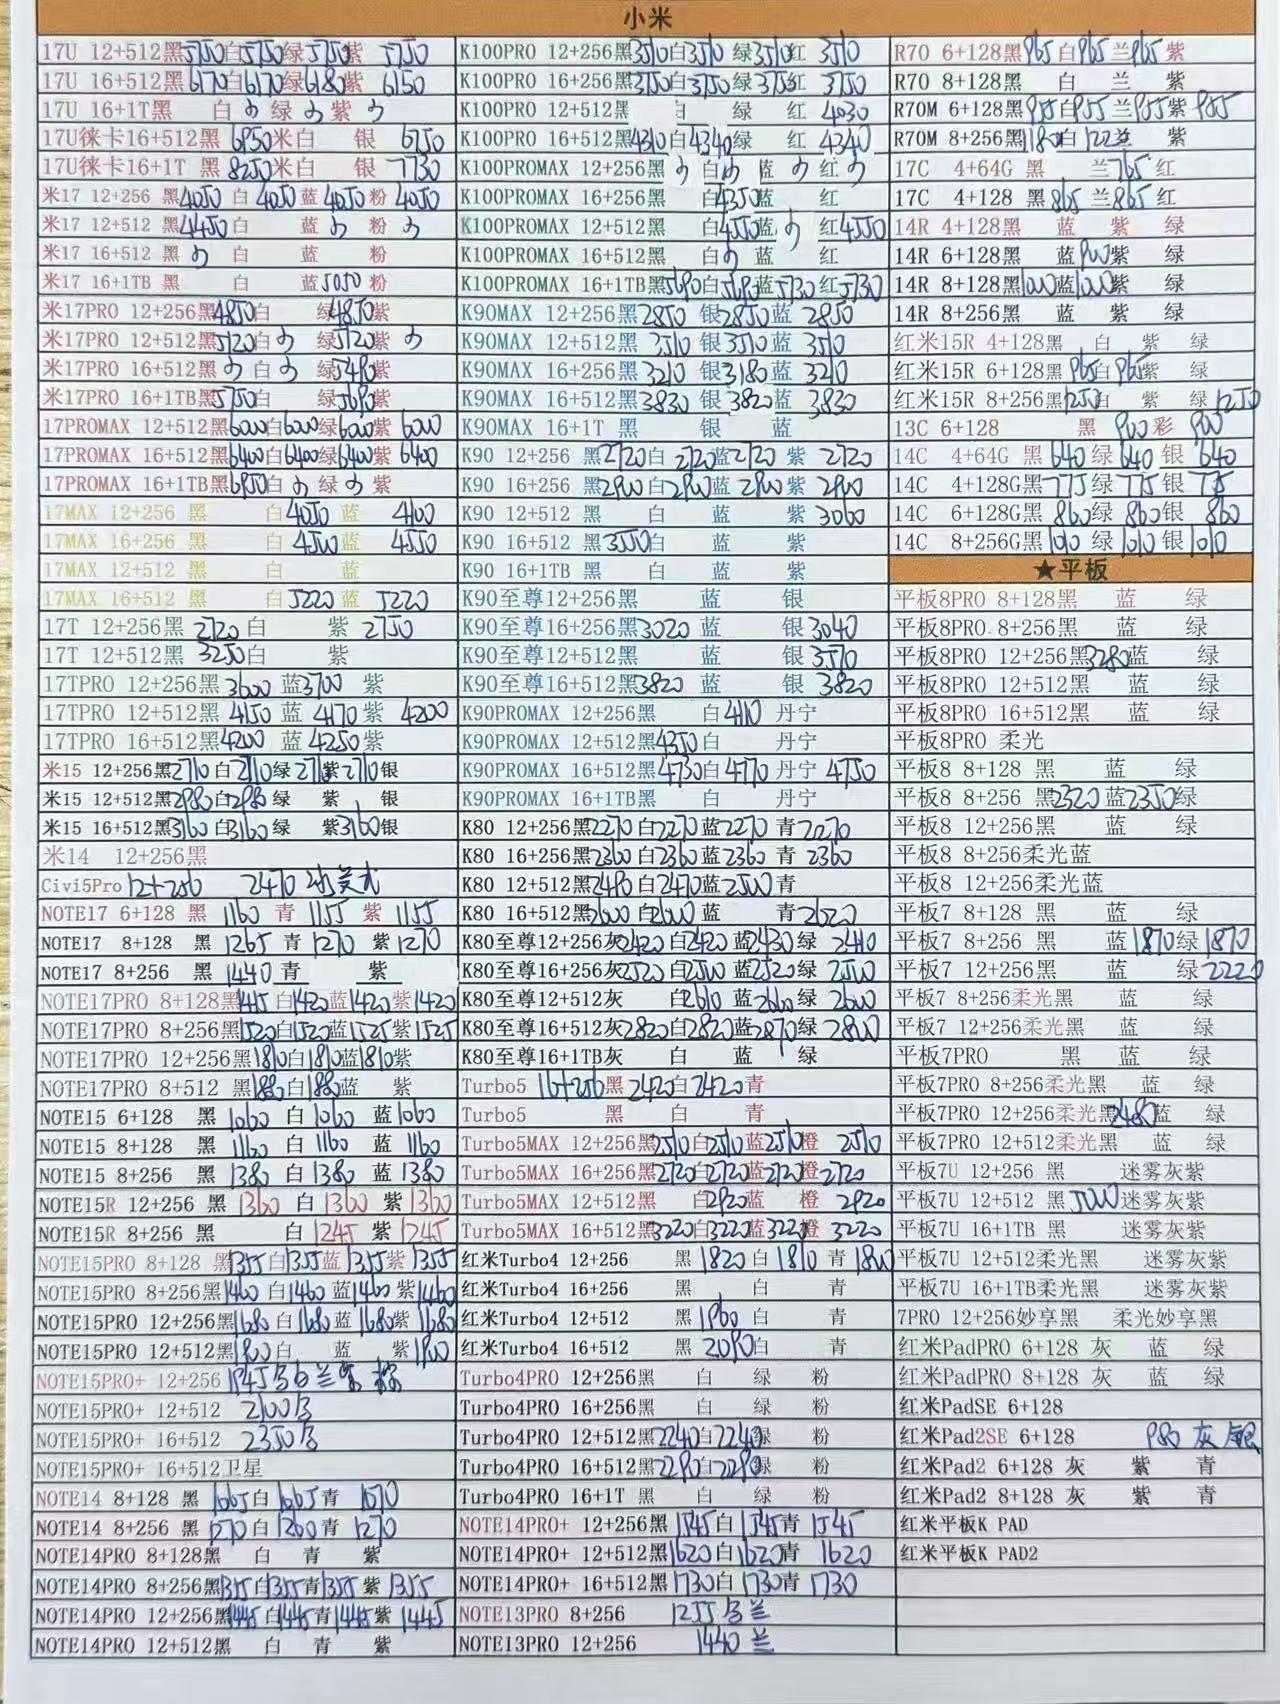 小米
17U 12+512黑5750白5750绿5750紫 5750
17U 16+512黑6170白6170绿6180紫 6150
17U 16+1T黑 白 绿 紫
17U徕卡16+512黑 6950米白 银 6750
17U徕卡16+1T 黑 8250米白 银 7730
米17 12+256 黑4050 白 4050 蓝 4050 粉 4050
米17 12+512 黑4450白 蓝 粉
米17 16+512 黑 白 蓝 粉
米17 16+1TB 黑 白 蓝5050 粉
米17PRO 12+256黑4850白 绿4850紫
米17PRO 12+512黑5120白 绿5120紫
米17PRO 16+512黑 白 绿5490紫
米17PRO 16+1TB黑5750白 绿5690紫
17PROMAX 12+512黑6000白6000绿6000紫 6000
17PROMAX 16+512黑6400白6400绿6400紫 6400
17PROMAX 16+1TB黑6950白 绿 紫
17MAX 12+256 黑 白4050 蓝 4100
17MAX 16+256 黑 白 4500蓝 4550
17MAX 12+512 黑 白 蓝
17MAX 16+512 黑 白5220 蓝 5220
17T 12+256黑 2720 白 紫 2750
17T 12+512黑 3250白 紫
17TPRO 12+256黑 3600 蓝3700 紫
17TPRO 12+512黑 4150 蓝 4170 紫 4200
17TPRO 16+512黑4200 蓝 4250紫
米15 12+256黑2710 白2710绿 2710紫2710银
米15 12+512黑2980白2980 绿 紫 银
米15 16+512黑3160 白3160 绿 紫3160银
米14 12+256黑
Civi5Pro 12+256 2470
NOTE17 6+128 黑 1160 青 1155 紫 1155
NOTE17 8+128 黑 1265 青 1270 紫 1270
NOTE17 8+256 黑 1440 青 紫
NOTE17PRO 8+128黑1415 白1420蓝1420紫1420
NOTE17PRO 8+256黑1520白1520蓝1525紫1525
NOTE17PRO 12+256黑1810白1810蓝1810紫
NOTE17PRO 8+512 黑1880白1880蓝 紫
NOTE15 6+128 黑 1060 白 1060 蓝1060
NOTE15 8+128 黑 1160 白 1160 蓝 1160
NOTE15 8+256 黑 1380 白 1380 蓝 1380
NOTE15R 12+256 黑 1360 白 1360 紫 1360
NOTE15R 8+256 黑 白 1245 紫 1245
NOTE15PRO 8+128 黑1355白1355蓝 1355紫1355
NOTE15PRO 8+256黑1460 白1460蓝1460紫1460
NOTE15PRO 12+256黑1680白1680蓝1680紫1680
NOTE15PRO 12+512黑1900白 蓝 紫1900
NOTE15PRO+ 12+256 1945
NOTE15PRO+ 12+512 2100
NOTE15PRO+ 16+512 2350
NOTE15PRO+ 16+512卫星
NOTE14 8+128 黑 1065白 1065青 1070
NOTE14 8+256 黑 1270白 1260青 1270
NOTE14PRO 8+128黑 白 青 紫
NOTE14PRO 8+256黑1355白1355青1355 紫 1355
NOTE14PRO 12+256黑1445白1445青1445紫 1445
NOTE14PRO 12+512黑 白 青 紫
K100PRO 12+256黑3510白3510 绿3510红 3510
K100PRO 16+256黑3750白3750 绿3750红 3750
K100PRO 12+512黑 白 绿 红 4030
K100PRO 16+512黑4310白4340绿 红 4340
K100PROMAX 12+256黑 白 蓝 红
K100PROMAX 16+256黑 白4350蓝 红
K100PROMAX 12+512黑 白4550蓝 红4550
K100PROMAX 16+512黑 白 蓝 红
K100PROMAX 16+1TB黑5690白5690蓝5730 红5730
K90MAX 12+256黑2850 银2850蓝 2850
K90MAX 12+512黑 3510 银3510蓝 3510
K90MAX 16+256黑 3210 银3180蓝 3210
K90MAX 16+512黑3830 银 3820蓝 3830
K90MAX 16+1T 黑 银 蓝
K90 12+256 黑2120白 2120蓝2120 紫 2720
K90 16+256 黑2900白2900蓝 2900紫 2900
K90 12+512 黑 白 蓝 紫3060
K90 16+512 黑3550白 蓝 紫
K90 16+1TB 黑 白 蓝 紫
K90至尊12+256黑 蓝 银
K90至尊16+256黑3020 蓝 银3040
K90至尊12+512黑 蓝 银3570
K90至尊16+512黑3820 蓝 银 3820
K90PROMAX 12+256黑 白4110 丹宁
K90PROMAX 12+512黑4350白 丹宁
K90PROMAX 16+512黑4730白4770 丹宁 4750
K90PROMAX 16+1TB黑 白 丹宁
K80 12+256黑2270 白2270蓝2270 青 2270
K80 16+256 黑2360 白2360蓝2360 青 2360
K80 12+512 黑2490白2470蓝2500青
K80 16+512黑2600 白2600 蓝 青2620
K80至尊12+256灰2420 白2420 蓝2430绿 2410
K80至尊16+256灰2520 白2500 蓝2520绿 2500
K80至尊12+512灰 白2610 蓝2660绿 2600
K80至尊16+512灰2820白2820蓝2870绿 2800
K80至尊16+1TB灰 白 蓝 绿
Turbo5 16+256黑 2420白2420青
Turbo5 黑 白 青
Turbo5MAX 12+256黑2510白2510蓝2510橙 2510
Turbo5MAX 16+256黑2720白2720蓝2720橙2720
Turbo5MAX 12+512黑 白2920蓝 橙 2920
Turbo5MAX 16+512黑3220白3220蓝3220橙 3220
红米Turbo4 12+256 黑 1820 白 1810 青 1800
红米Turbo4 16+256 黑 白 青
红米Turbo4 12+512 黑 1960 白 青
红米Turbo4 16+512 黑 2090白 青
Turbo4PRO 12+256黑 白 绿 粉
Turbo4PRO 16+256黑 白 绿 粉
Turbo4PRO 12+512黑2240白2240绿 粉
Turbo4PRO 16+512黑2290白2290绿 粉
Turbo4PRO 16+1T 黑 白 绿 粉
NOTE14PRO+ 12+256黑 1545白1545青 1545
NOTE14PRO+ 12+512黑1620白1620青 1620
NOTE14PRO+ 16+512黑1730白 1730青 1730
NOTE13PRO 8+256 1255
NOTE13PRO 12+256 1440 兰
R70 6+128黑965 白965兰965 紫
R70 8+128黑 白 兰 紫
R70M 6+128黑955白955兰955紫 955
R70M 8+256黑1180白 122兰 紫
17C 4+64G 黑 兰765 红
17C 4+128 黑 865 兰865红
14R 4+128黑 蓝 紫 绿
14R 6+128黑 蓝900紫 绿
14R 8+128黑1000蓝1000紫 绿
14R 8+256黑 蓝 紫 绿
红米15R 4+128黑 白 紫 绿
红米15R 6+128黑 965白965紫 绿
红米15R 8+256黑1250白 紫 绿1250
13C 6+128 黑 900彩 900
14C 4+64G 黑 640 绿 640 银 640
14C 4+128G黑775绿 775银 775
14C 6+128G黑 860绿 860银 860
14C 8+256G黑1010 绿 1010银1010
★平板
平板8PRO 8+128黑 蓝 绿
平板8PRO 8+256黑 蓝 绿
平板8PRO 12+256黑3280蓝 绿
平板8PRO 12+512黑 蓝 绿
平板8PRO 16+512黑 蓝 绿
平板8PRO 柔光
平板8 8+128 黑 蓝 绿
平板8 8+256 黑2320 蓝2350绿
平板8 12+256黑 蓝 绿
平板8 8+256柔光蓝
平板8 12+256柔光蓝
平板7 8+128黑 蓝 绿
平板7 8+256 黑 蓝1870绿1870
平板7 12+256黑 蓝 绿2220
平板7 8+256柔光黑 蓝 绿
平板7 12+256柔光黑 蓝 绿
平板7PRO 黑 蓝 绿
平板7PRO 8+256柔光黑 蓝 绿
平板7PRO 12+256柔光黑2480蓝 绿
平板7PRO 12+512柔光黑 蓝 绿
平板7U 12+256 黑 迷雾灰紫
平板7U 12+512 黑5000迷雾灰紫
平板7U 16+1TB 黑 迷雾灰紫
平板7U 12+512柔光黑 迷雾灰紫
平板7U 16+1TB柔光黑 迷雾灰紫
7PRO 12+256妙享黑 柔光妙享黑
红米PadPRO 6+128 灰 蓝 绿
红米PadPRO 8+128 灰 蓝 绿
红米PadSE 6+128
红米Pad2SE 6+128 980 灰 银
红米Pad2 6+128 灰 紫 青
红米Pad2 8+128 灰 紫 青
红米平板K PAD
红米平板K PAD2